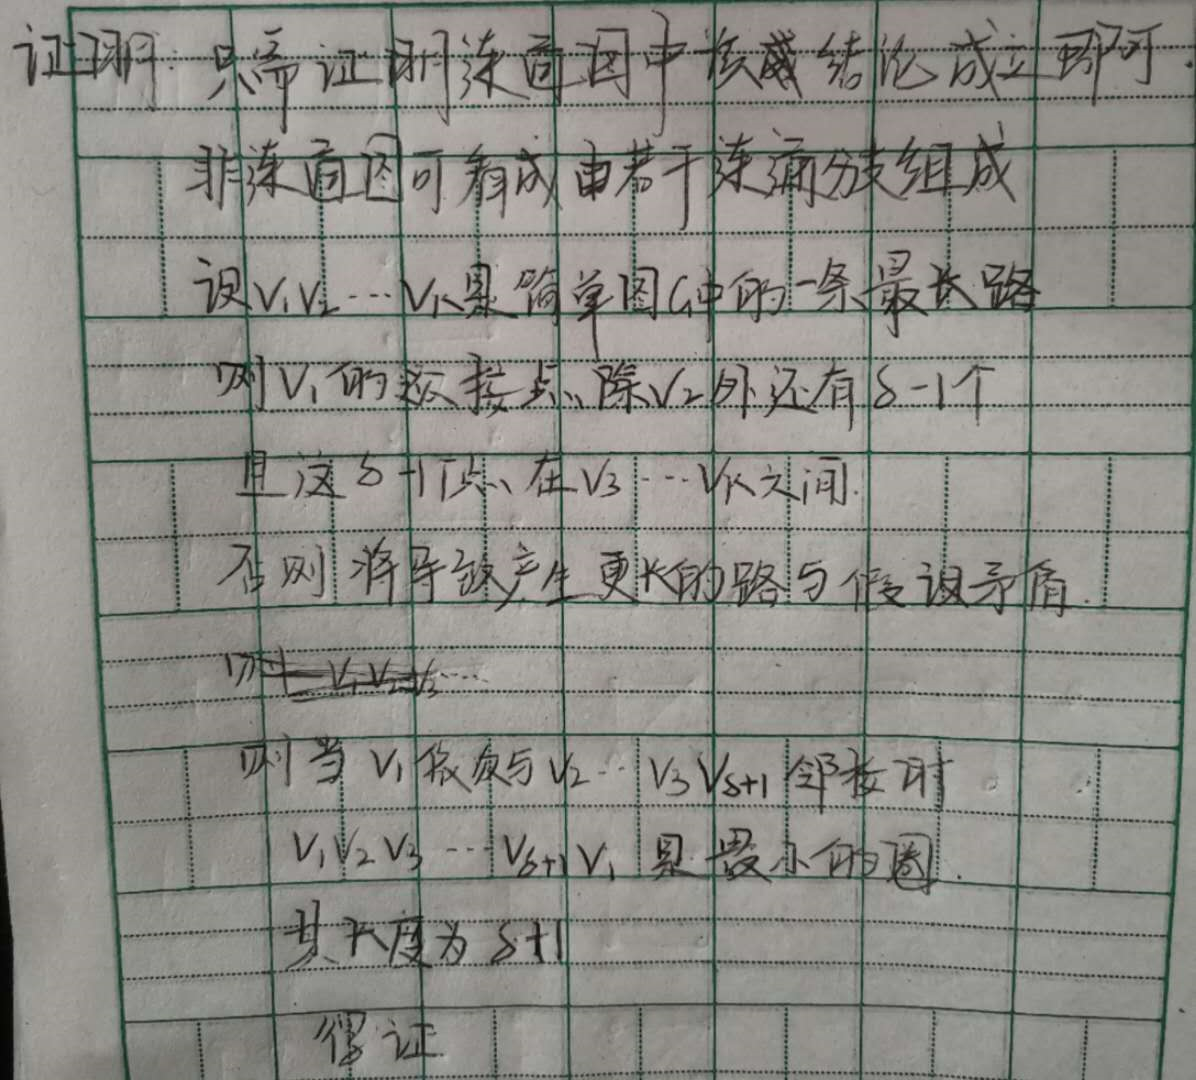 证明：只需证明连通图中该结论成立即可.
非连通图可看成由若干连通分支组成
设V₁V₂…Vₖ是简单图G中的一条最长路
则V₁的邻接点、除V₂外还有δ-1个
且这δ-1个点、在V₃…Vₖ之间.
否则将导致产生更长的路与假设矛盾.
则 V₁V₂V₃…
则当V₁依次与V₂…V₃Vδ+1邻接时
V₁V₂V₃…Vδ+1V₁是最小的圈.
其长度为δ+1
得证